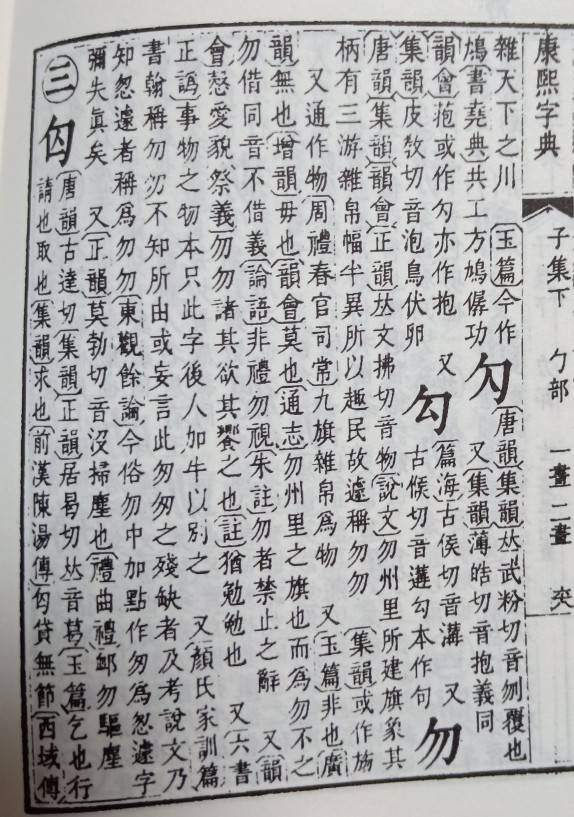 康熙字典 子集下 勹部 一畫二畫
雜天下之川 玉篇今作
鳩書堯典共工方鳩僝功
勽 唐韻集韻𠀤武粉切音刎覆也
又集韻薄皓切音抱義同
韻會菢或作勽亦作抱 又
集韻皮敎切音泡鳥伏卵
勾 篇海古侯切音溝 又
古候切音遘勾本作句
勿
唐韻集韻韻會正韻𠀤文拂切音物說文勿州里所建旗象其
柄有三游雜帛幅半異所以趣民故遽稱勿勿 集韻或作
又通作物周禮春官司常九旗雜帛爲物 又玉篇非也廣
韻無也增韻毋也韻會莫也通志勿州里之旗也而爲勿不之
勿借同音不借義論語非禮勿視朱註勿者禁止之辭 又韻
會愨愛貌祭義勿勿諸其欲其饗之也註猶勉勉也 又六書
正譌事物之物本只此字後人加牛以別之 又顏氏家訓篇
書翰稱勿勿不知所由或妄言此匆匆之殘缺者及考說文乃
知怱遽者稱爲勿勿東觀餘論今俗勿中加點作匆爲怱遽字
彌失眞矣 又正韻莫勃切音沒掃塵也禮曲禮䘏勿驅塵
三 匃 唐韻古達切集韻正韻居曷切𠀤音葛玉篇乞也行
請也取也集韻求也前漢陳湯傳匃貸無節西域傳